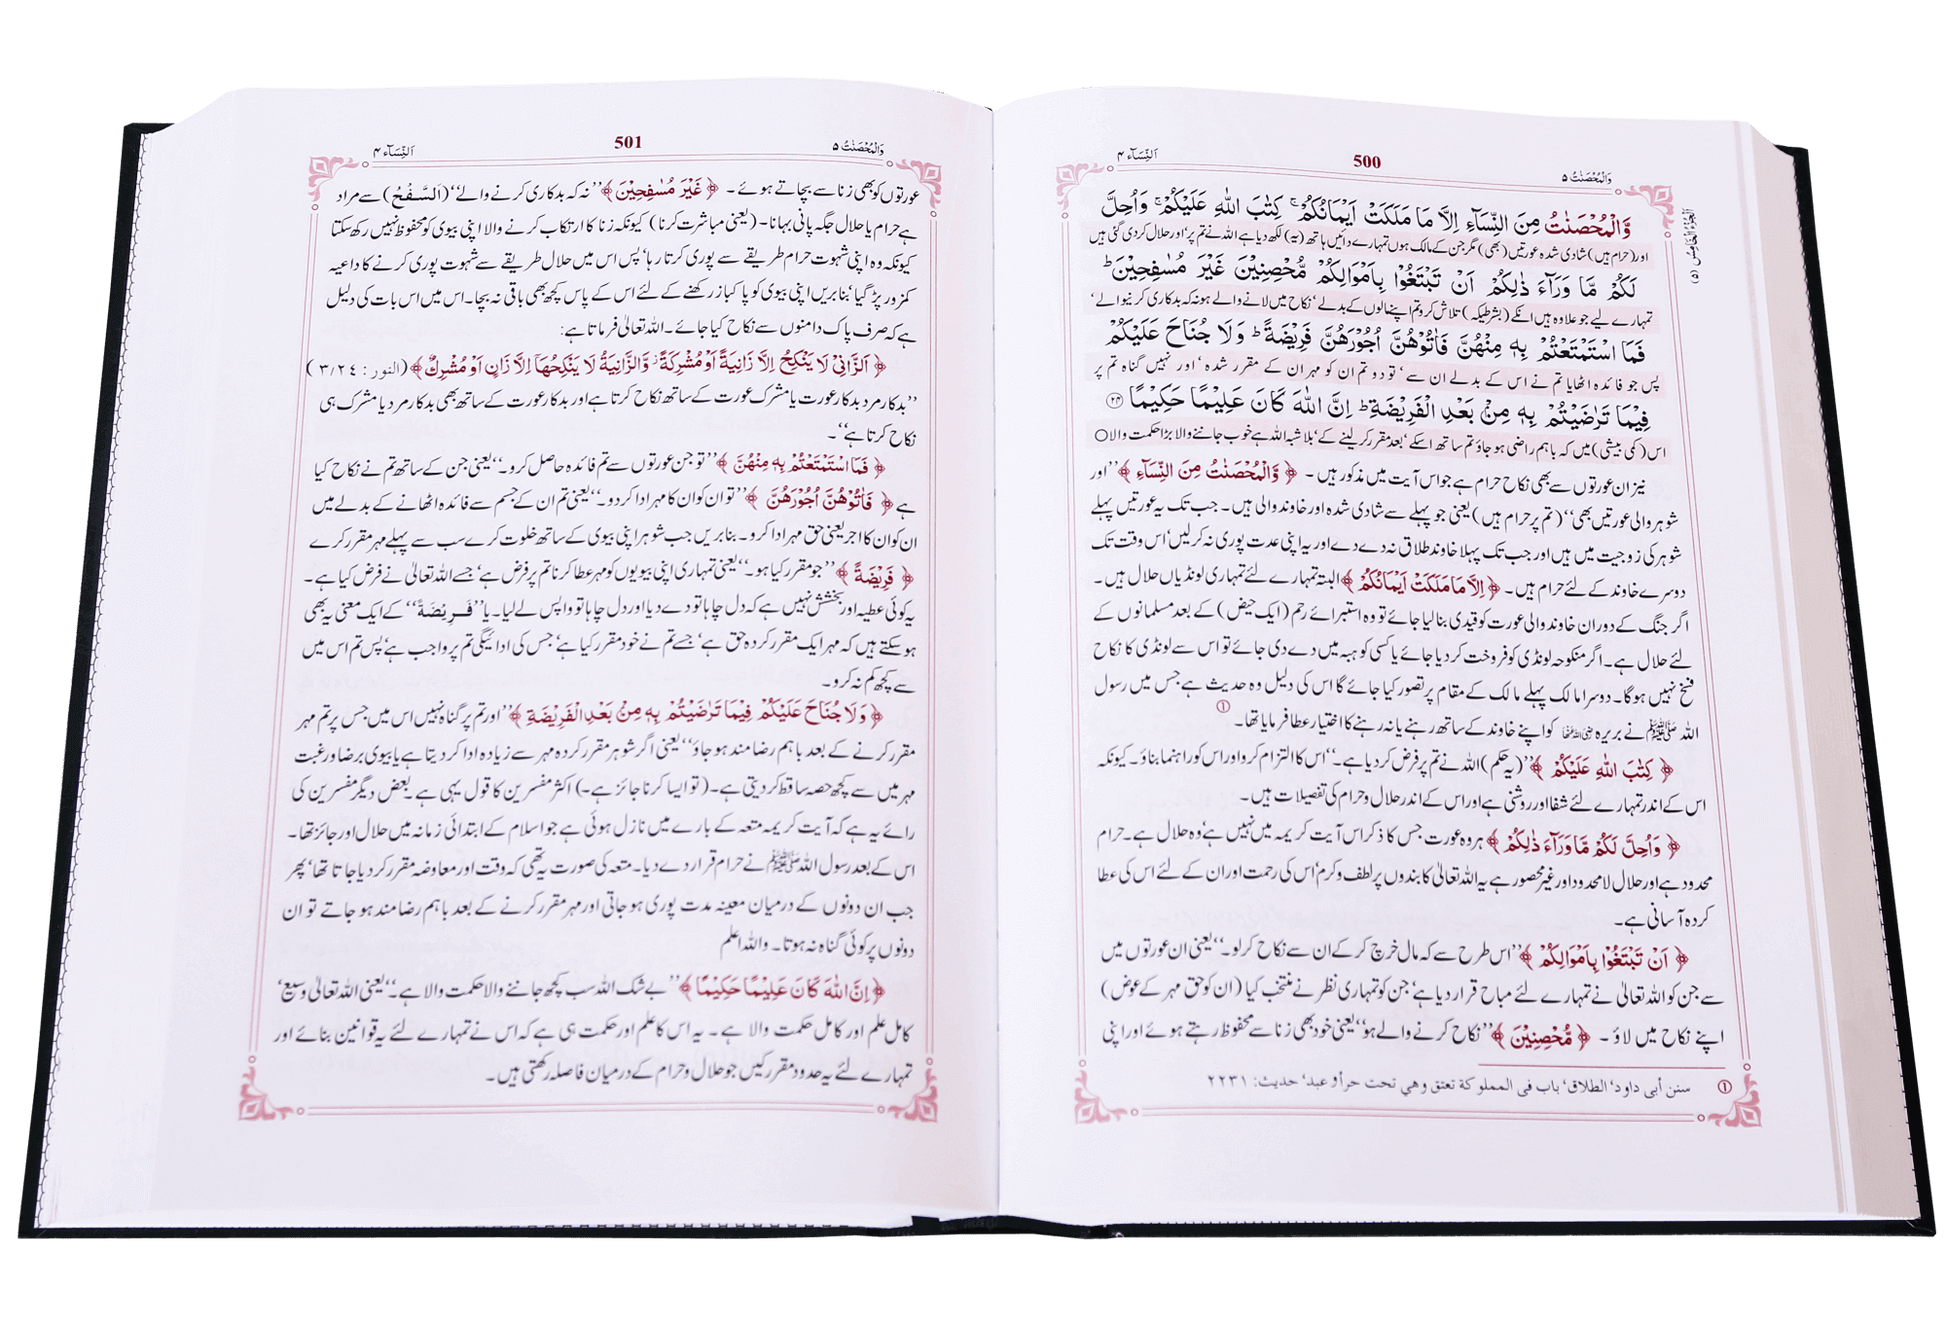 وَالْمُحْصَنٰتُ ۵
500
اَلنِّسَآء ۴
اَلْجُزْءُ الْخَامِسُ (۵)
وَّالْمُحْصَنٰتُ مِنَ النِّسَآءِ اِلَّا مَا مَلَكَتْ اَيْمَانُكُمْ ۚ كِتٰبَ اللّٰهِ عَلَيْكُمْ ۚ وَاُحِلَّ
اور (حرام ہیں) شادی شدہ عورتیں (بھی) مگر جن کے مالک ہوں تمہارے دائیں ہاتھ (یہ) لکھ دیا ہے اللہ نے تم پر' اور حلال کر دی گئی ہیں
لَكُمْ مَّا وَرَآءَ ذٰلِكُمْ اَنْ تَبْتَغُوْا بِاَمْوَالِكُمْ مُّحْصِنِيْنَ غَيْرَ مُسٰفِحِيْنَ ؕ
تمہارے لیے جو علاوہ ہیں انکے (بشرطیکہ) تلاش کرو تم اپنے مالوں کے بدلے' نکاح میں لانے والے ہو نہ کہ بدکاری کرنیوالے'
فَمَا اسْتَمْتَعْتُمْ بِهٖ مِنْهُنَّ فَاٰتُوْهُنَّ اُجُوْرَهُنَّ فَرِيْضَةً ؕ وَلَا جُنَاحَ عَلَيْكُمْ
پس جو فائدہ اٹھایا تم نے اس کے بدلے ان سے' تو دو تم ان کو مہر ان کے مقرر شدہ' اور نہیں گناہ تم پر
فِيْمَا تَرٰضَيْتُمْ بِهٖ مِنْۢ بَعْدِ الْفَرِيْضَةِ ؕ اِنَّ اللّٰهَ كَانَ عَلِيْمًا حَكِيْمًا ۝۲۴
اس (کمی بیشی) میں کہ باہم راضی ہو جاؤ تم ساتھ اسکے' بعد مقرر کر لینے کے' بلاشبہ اللہ ہے خوب جاننے والا بڑا حکمت والا○
نیز ان عورتوں سے بھی نکاح حرام ہے جو اس آیت میں مذکور ہیں۔ ﴿ وَّالْمُحْصَنٰتُ مِنَ النِّسَآءِ ﴾ ’’اور
شوہر والی عورتیں بھی‘‘ (تم پر حرام ہیں) یعنی جو پہلے سے شادی شدہ اور خاوند والی ہیں۔ جب تک یہ عورتیں پہلے
شوہر کی زوجیت میں ہیں اور جب تک پہلا خاوند طلاق نہ دے دے اور یہ اپنی عدت پوری نہ کر لیں' اس وقت تک
دوسرے خاوند کے لئے حرام ہیں۔ ﴿ اِلَّا مَا مَلَكَتْ اَيْمَانُكُمْ ﴾ البتہ تمہارے لئے تمہاری لونڈیاں حلال ہیں۔
اگر جنگ کے دوران خاوند والی عورت کو قیدی بنا لیا جائے تو وہ استبرائے رحم (ایک حیض) کے بعد مسلمانوں کے
لئے حلال ہے۔ اگر منکوحہ لونڈی کو فروخت کر دیا جائے یا کسی کو ہبہ میں دے دی جائے تو اس سے لونڈی کا نکاح
فسخ نہیں ہوگا۔ دوسرا مالک پہلے مالک کے مقام پر تصور کیا جائے گا اس کی دلیل وہ حدیث ہے جس میں رسول
اللہ ﷺ نے بریرہ رضی اللہ عنہا کو اپنے خاوند کے ساتھ رہنے یا نہ رہنے کا اختیار عطا فرمایا تھا۔ ①
﴿ كِتٰبَ اللّٰهِ عَلَيْكُمْ ﴾ ’’(یہ حکم) اللہ نے تم پر فرض کر دیا ہے۔‘‘ اس کا التزام کرو اور اس کو راہنما بناؤ۔ کیونکہ
اس کے اندر تمہارے لئے شفا اور روشنی ہے اور اس کے اندر حلال و حرام کی تفصیلات ہیں۔
﴿ وَاُحِلَّ لَكُمْ مَّا وَرَآءَ ذٰلِكُمْ ﴾ ہر وہ عورت جس کا ذکر اس آیت کریمہ میں نہیں ہے' وہ حلال ہے۔ حرام
محدود ہے اور حلال لامحدود اور غیر محصور ہے یہ اللہ تعالیٰ کا بندوں پر لطف و کرم' اس کی رحمت اور ان کے لئے اس کی عطا
کردہ آسانی ہے۔
﴿ اَنْ تَبْتَغُوْا بِاَمْوَالِكُمْ ﴾ ’’اس طرح سے کہ مال خرچ کر کے ان سے نکاح کر لو۔‘‘ یعنی ان عورتوں میں
سے جن کو اللہ تعالیٰ نے تمہارے لئے مباح قرار دیا ہے' جن کو تمہاری نظر نے منتخب کیا (ان کو حق مہر کے عوض)
اپنے نکاح میں لاؤ۔ ﴿ مُّحْصِنِيْنَ ﴾ ’’نکاح کرنے والے ہو‘‘ یعنی خود بھی زنا سے محفوظ رہتے ہوئے اور اپنی
① سنن أبی داود' الطلاق' باب فی المملوكة تعتق وهي تحت حر أو عبد' حديث: ۲۲۳۱
وَالْمُحْصَنٰتُ ۵
501
اَلنِّسَآء ۴
عورتوں کو بھی زنا سے بچاتے ہوئے۔ ﴿ غَيْرَ مُسٰفِحِيْنَ ﴾ ’’نہ کہ بدکاری کرنے والے‘‘ (اَلسَّفْحُ) سے مراد
ہے حرام یا حلال جگہ پانی بہانا۔ (یعنی مباشرت کرنا) کیونکہ زنا کا ارتکاب کرنے والا اپنی بیوی کو محفوظ نہیں رکھ سکتا
کیونکہ وہ اپنی شہوت حرام طریقے سے پوری کرتا رہا' پس اس میں حلال طریقے سے شہوت پوری کرنے کا داعیہ
کمزور پڑ گیا' بنا بریں اپنی بیوی کو پاکباز رکھنے کے لئے اس کے پاس کچھ بھی باقی نہ بچا۔ اس میں اس بات کی دلیل
ہے کہ صرف پاک دامنوں سے نکاح کیا جائے۔ اللہ تعالیٰ فرماتا ہے:
﴿ اَلزَّانِيْ لَا يَنْكِحُ اِلَّا زَانِيَةً اَوْ مُشْرِكَةً ۡ وَّالزَّانِيَةُ لَا يَنْكِحُهَاۤ اِلَّا زَانٍ اَوْ مُشْرِكٌ ﴾ (النور : ۳/۲٤)
’’بدکار مرد بدکار عورت یا مشرک عورت کے ساتھ نکاح کرتا ہے اور بدکار عورت کے ساتھ بھی بدکار مرد یا مشرک ہی
نکاح کرتا ہے‘‘۔
﴿ فَمَا اسْتَمْتَعْتُمْ بِهٖ مِنْهُنَّ ﴾ ’’تو جن عورتوں سے تم فائدہ حاصل کرو۔‘‘ یعنی جن کے ساتھ تم نے نکاح کیا
ہے ﴿ فَاٰتُوْهُنَّ اُجُوْرَهُنَّ ﴾ ’’تو ان کو ان کا مہر ادا کر دو۔‘‘ یعنی تم ان کے جسم سے فائدہ اٹھانے کے بدلے میں
ان کو ان کا اجر یعنی حق مہر ادا کرو۔ بنا بریں جب شوہر اپنی بیوی کے ساتھ خلوت کرے سب سے پہلے مہر مقرر کرے
﴿ فَرِيْضَةً ﴾ ’’جو مقرر کیا ہو۔‘‘ یعنی تمہاری اپنی بیویوں کو مہر عطا کرنا تم پر فرض ہے' جسے اللہ تعالیٰ نے فرض کیا ہے۔
یہ کوئی عطیہ اور بخشش نہیں ہے کہ دل چاہا تو دے دیا اور دل چاہا تو واپس لے لیا۔ یا ’’فَرِيْضَةً‘‘ کے ایک معنی یہ بھی
ہو سکتے ہیں کہ مہر ایک مقرر کردہ حق ہے' جسے تم نے خود مقرر کیا ہے' جس کی ادائیگی تم پر واجب ہے' پس تم اس میں
سے کچھ کم نہ کرو۔
﴿ وَلَا جُنَاحَ عَلَيْكُمْ فِيْمَا تَرٰضَيْتُمْ بِهٖ مِنْۢ بَعْدِ الْفَرِيْضَةِ ﴾ ’’اور تم پر گناہ نہیں اس میں جس پر تم مہر
مقرر کرنے کے بعد باہم رضا مند ہو جاؤ‘‘ یعنی اگر شوہر مقرر کردہ مہر سے زیادہ ادا کر دیتا ہے یا بیوی برضا و رغبت
مہر میں سے کچھ حصہ ساقط کر دیتی ہے۔ (تو ایسا کرنا جائز ہے۔) اکثر مفسرین کا قول یہی ہے۔ بعض دیگر مفسرین کی
رائے یہ ہے کہ آیت کریمہ متعہ کے بارے میں نازل ہوئی ہے جو اسلام کے ابتدائی زمانہ میں حلال اور جائز تھا۔
اس کے بعد رسول اللہ ﷺ نے حرام قرار دے دیا۔ متعہ کی صورت یہ تھی کہ وقت اور معاوضہ مقرر کر دیا جاتا تھا' پھر
جب ان دونوں کے درمیان معینہ مدت پوری ہو جاتی اور مہر مقرر کرنے کے بعد باہم رضا مند ہو جاتے تو ان
دونوں پر کوئی گناہ نہ ہوتا۔ واللہ اعلم
﴿ اِنَّ اللّٰهَ كَانَ عَلِيْمًا حَكِيْمًا ﴾ ’’بے شک اللہ سب کچھ جاننے والا حکمت والا ہے۔‘‘ یعنی اللہ تعالیٰ وسیع'
کامل علم اور کامل حکمت والا ہے۔ یہ اس کا علم اور حکمت ہی ہے کہ اس نے تمہارے لئے یہ قوانین بنائے اور
تمہارے لئے یہ حدود مقرر کیں جو حلال و حرام کے درمیان فاصلہ رکھتی ہیں۔